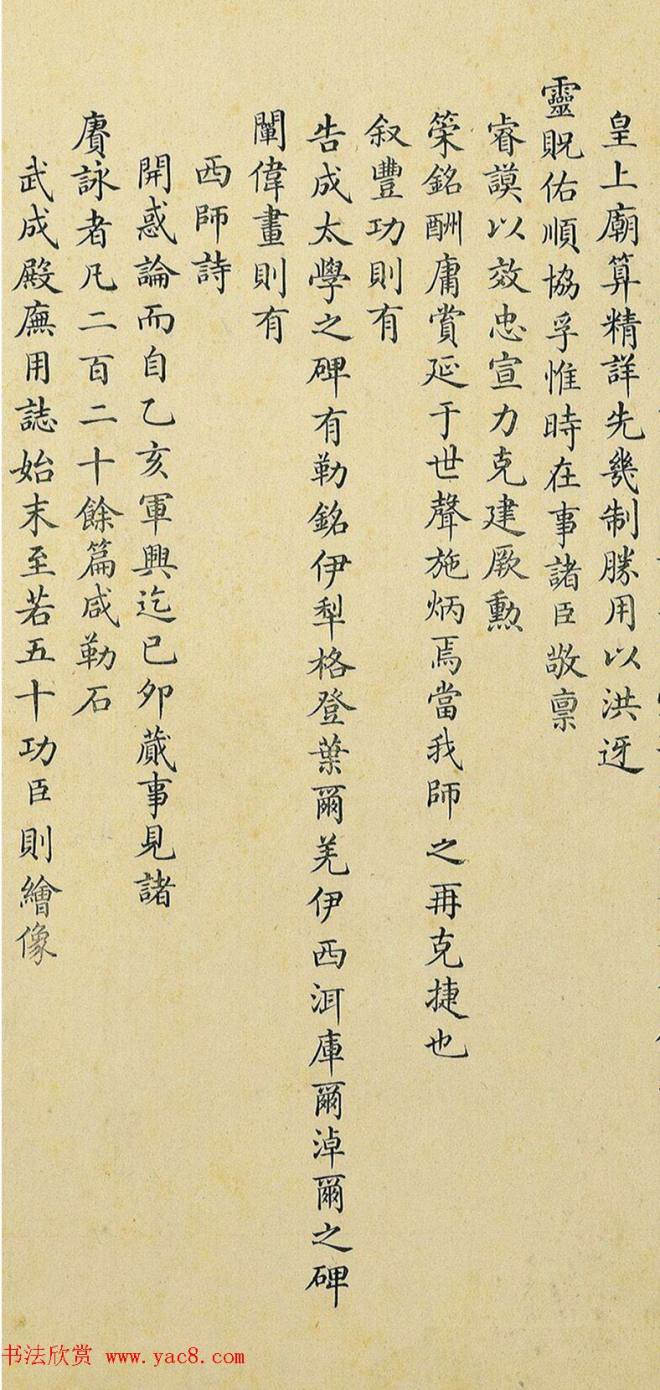 皇上廟算精詳先幾制勝用以洪迓
靈貺佑順協孚惟時在事諸臣敬稟
睿謨以效忠宣力克建厥勳
榮銘酬庸賞延于世聲施炳焉當我師之再克捷也
叙豐功則有
告成太學之碑有勒銘伊犁格登葉爾羌伊西洱庫爾淖爾之碑
闡偉畫則有
西師詩
開惑論而自乙亥軍興迄己卯蕆事見諸
賡詠者凡二百二十餘篇咸勒石
武成殿廡用誌始末至若五十功臣則繪像
书法欣赏 www.yac8.com